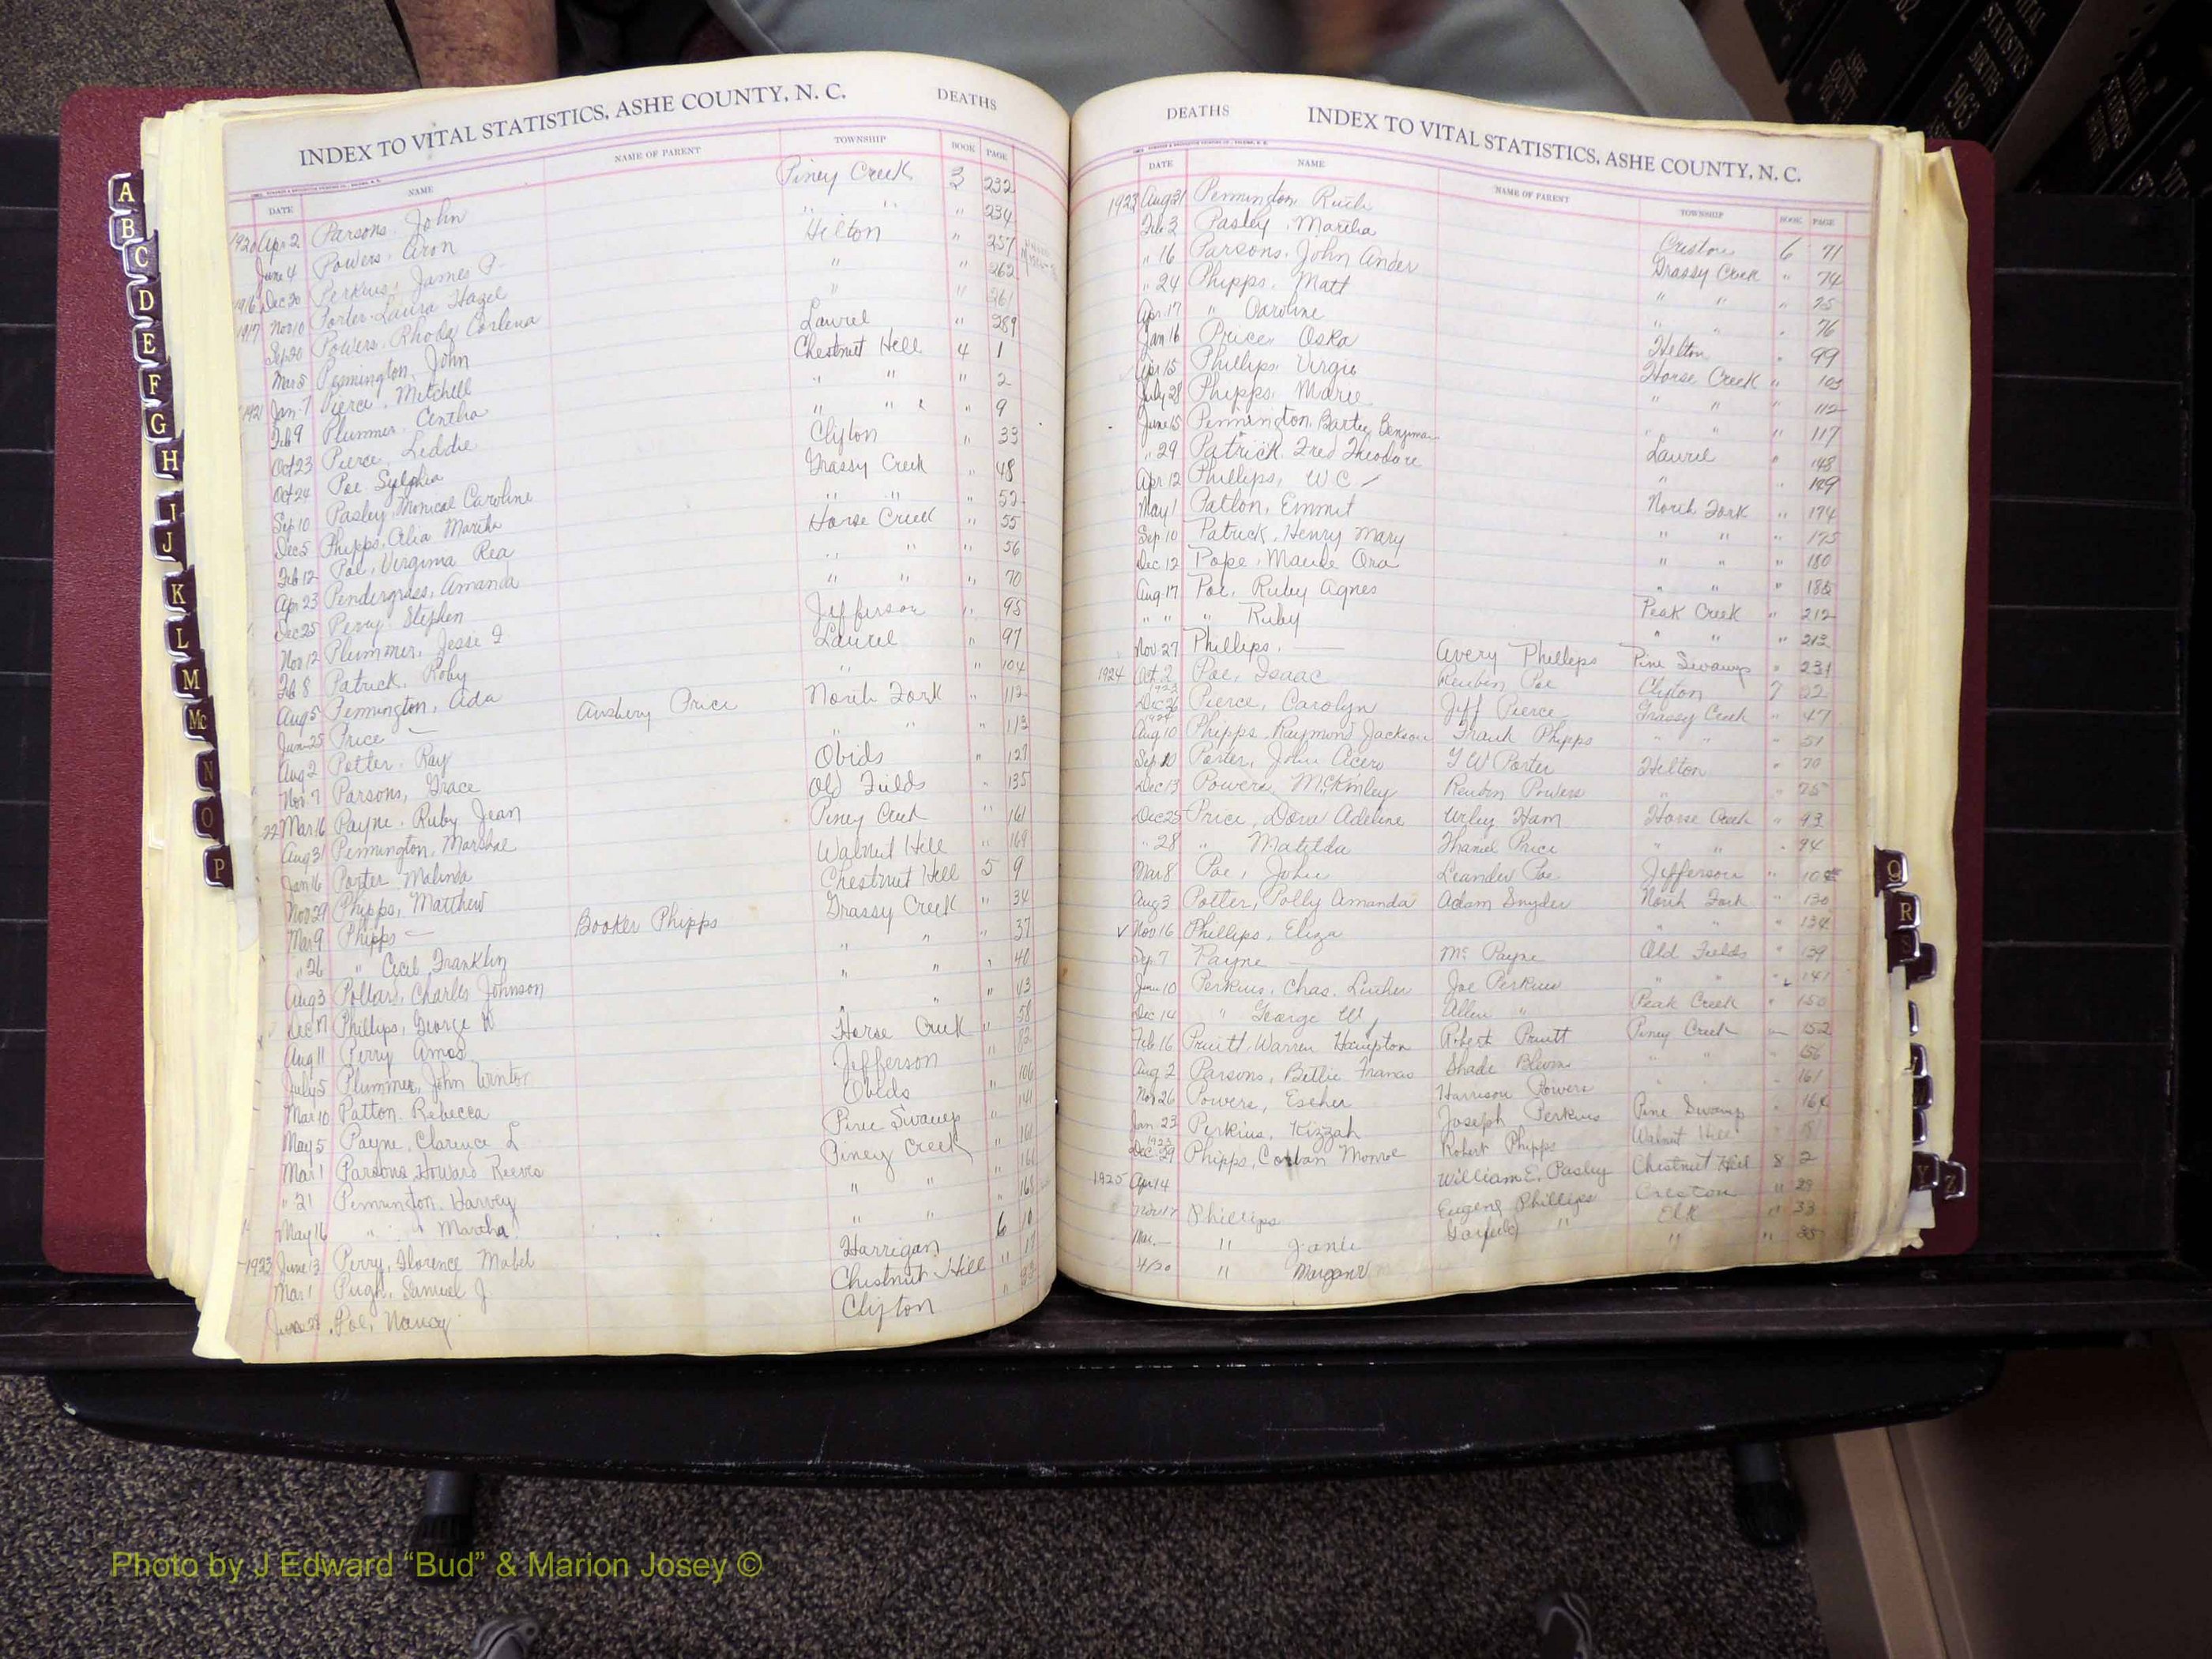 INDEX TO VITAL STATISTICS, ASHE COUNTY, N. C. DEATHS
DATE NAME NAME OF PARENT TOWNSHIP BOOK PAGE
1920 Apr 2 Parsons, John Piney Creek 3 232
June 4 Powers, Aron " " " 234
1916 Dec 30 Perkins, James P. Hilton " 257
1917 Nov 10 Porter, Laura Hazel " " 262
Sep 20 Powers, Rhoda Corlena " " 261
Mar 5 Pennington, John Laurel " 289
1921 Jan 7 Pierce, Mitchell Chestnut Hill 4 1
Feb 9 Plummer, Centha " " " 2
Oct 23 Pierce, Liddie " " " 9
Oct 24 Poe Sylphia Clifton " 33
Sep 10 Pasley, Monical Caroline Grassy Creek " 48
Dec 5 Phipps, Alia Martha " " " 52
Feb 12 Poe, Virginia Rea Horse Creek " 55
Apr 23 Pendergrass, Amanda " " " 56
Dec 25 Perry Stephen " " " 70
Nov 12 Plummer, Jesse F Jefferson " 95
Feb 8 Patrick, Roby Laurel " 97
Aug 5 Pennington, Ada " " 104
Jun 25 Price — Ausbery Price North Fork " 112
Aug 2 Potter, Ray " " " 113
Nov 7 Parsons, Grace Obids " 127
22 Mar 16 Payne, Ruby Jean Old Fields " 135
Aug 31 Pennington, Marshal Piney Creek " 161
Jan 16 Porter Malinda Walnut Hill " 169
Nov 29 Phipps, Matthew Chestnut Hill 5 9
Mar 9 Phipps — Booker Phipps Grassy Creek " 34
" 26 " Cecil Franklin " " " 37
Aug 3 Pollard, Charles Johnson " " " 40
Dec 17 Phillips, George W " " " 43
Aug 11 Perry Amos Horse Creek " 58
July 5 Plummer, John Winter Jefferson "
Mar 10 Patton, Rebecca Obids " 106
May 5 Payne, Clarence L Pine Swamp " 141
Mar 1 Parsons Howard Reeves Piney Creek " 161
" 21 Pennington, Harvey " " "
May 16 " " Martha " " " 165
1923 June 13 Perry, Florence Mabel Harrigan 6 10
Mar 1 Pugh, Samuel J. Chestnut Hill " 17
June 28 Poe, Nancy Clifton "
DEATHS INDEX TO VITAL STATISTICS, ASHE COUNTY, N. C.
DATE NAME NAME OF PARENT TOWNSHIP BOOK PAGE
1923 Aug 31 Pennington, Ruth Creston 6 71
Feb 3 Pasley, Martha Grassy Creek " 74
" 16 Parsons, John Ander " " " 75
" 24 Phipps, Matt " " " 76
Apr 17 " Caroline Helton " 99
Jan 16 Price, Oska Horse Creek " 103
Apr 15 Phillips, Virgie " " " 112
July 28 Phipps, Marie " " " 117
June 15 Pennington, Barter Benjiman Laurel " 148
" 29 Patrick, Fred Theodore " " 149
Apr 12 Phillips, W C North Fork " 174
May 1 Patton, Emmit " " " 175
Sep 10 Patrick, Henry Mary " " " 180
Dec 12 Pope, Maude Ora " " " 185
Aug 17 Poe, Ruby Agnes Peak Creek " 212
" " " Ruby " " " 213
Nov 27 Phillips, — Avery Phillips Pine Swamp " 231
1924 Oct 2 Poe, Isaac Reuben Poe Clifton 7 22
1923 Dec 26 Pierce, Carolyn Jeff Pierce Grassy Creek " 47
1924 Aug 10 Phipps, Raymond Jackson Frank Phipps " " " 51
Sep 10 Porter, John Cicero T W Porter Helton " 70
Dec 13 Powers, McKinley Reuben Powers " " 75
Dec 25 Price, Dove Adeline Wiley Ham Horse Creek " 93
" 28 " Matilda Thaniel Price " " " 94
Mar 8 Poe, John Leander Poe Jefferson "
Aug 3 Potter, Polly Amanda Adam Snyder North Fork " 130
✓ Nov 16 Phillips, Eliza " " " 134
Sep 7 Payne — Mc Payne Old Fields " 139
June 10 Perkins, Chas. Luther Joe Perkins " " " 141
Dec 14 " George W, Allen " Peak Creek " 150
Feb 16 Pruitt, Warren Hampton Robert Pruitt Piney Creek " 152
Aug 2 Parsons, Bettie Frances Shade Blevins " " " 156
Nov 26 Powers, Escher Harrison Powers " " " 161
Jan 23 Perkins, Kizzah Joseph Perkins Pine Swamp "
1923 Dec 29 Phipps, Corban Monroe Robert Phipps Walnut Hill "
1925 Apr 14 William E. Pasley Chestnut Hill 8 2
Nov 17 Phillips Eugene Phillips Creston " 29
Mar. — " Janie Garfield " Elk " 33
4/30 " Margaret " " 35
A
B
C
D
E
F
G
H
I
J
K
L
M
Mc
N
O
P
Q
R
S
Y
Z
VITAL STATISTICS BIRTHS 1963
Photo by J Edward “Bud” & Marion Josey ©